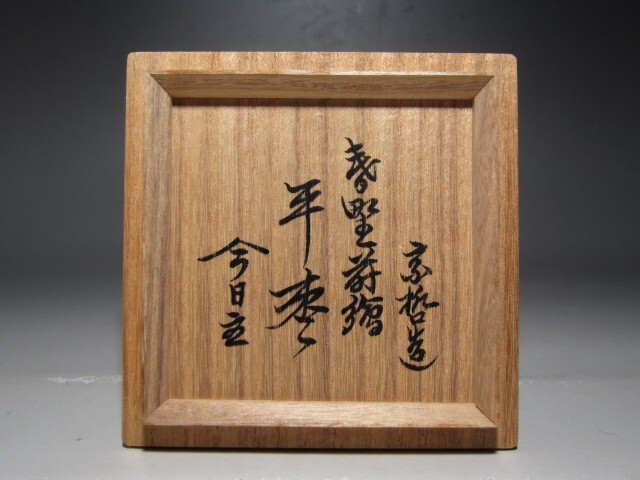 宗哲造
春野蒔繪
平棗
今日主